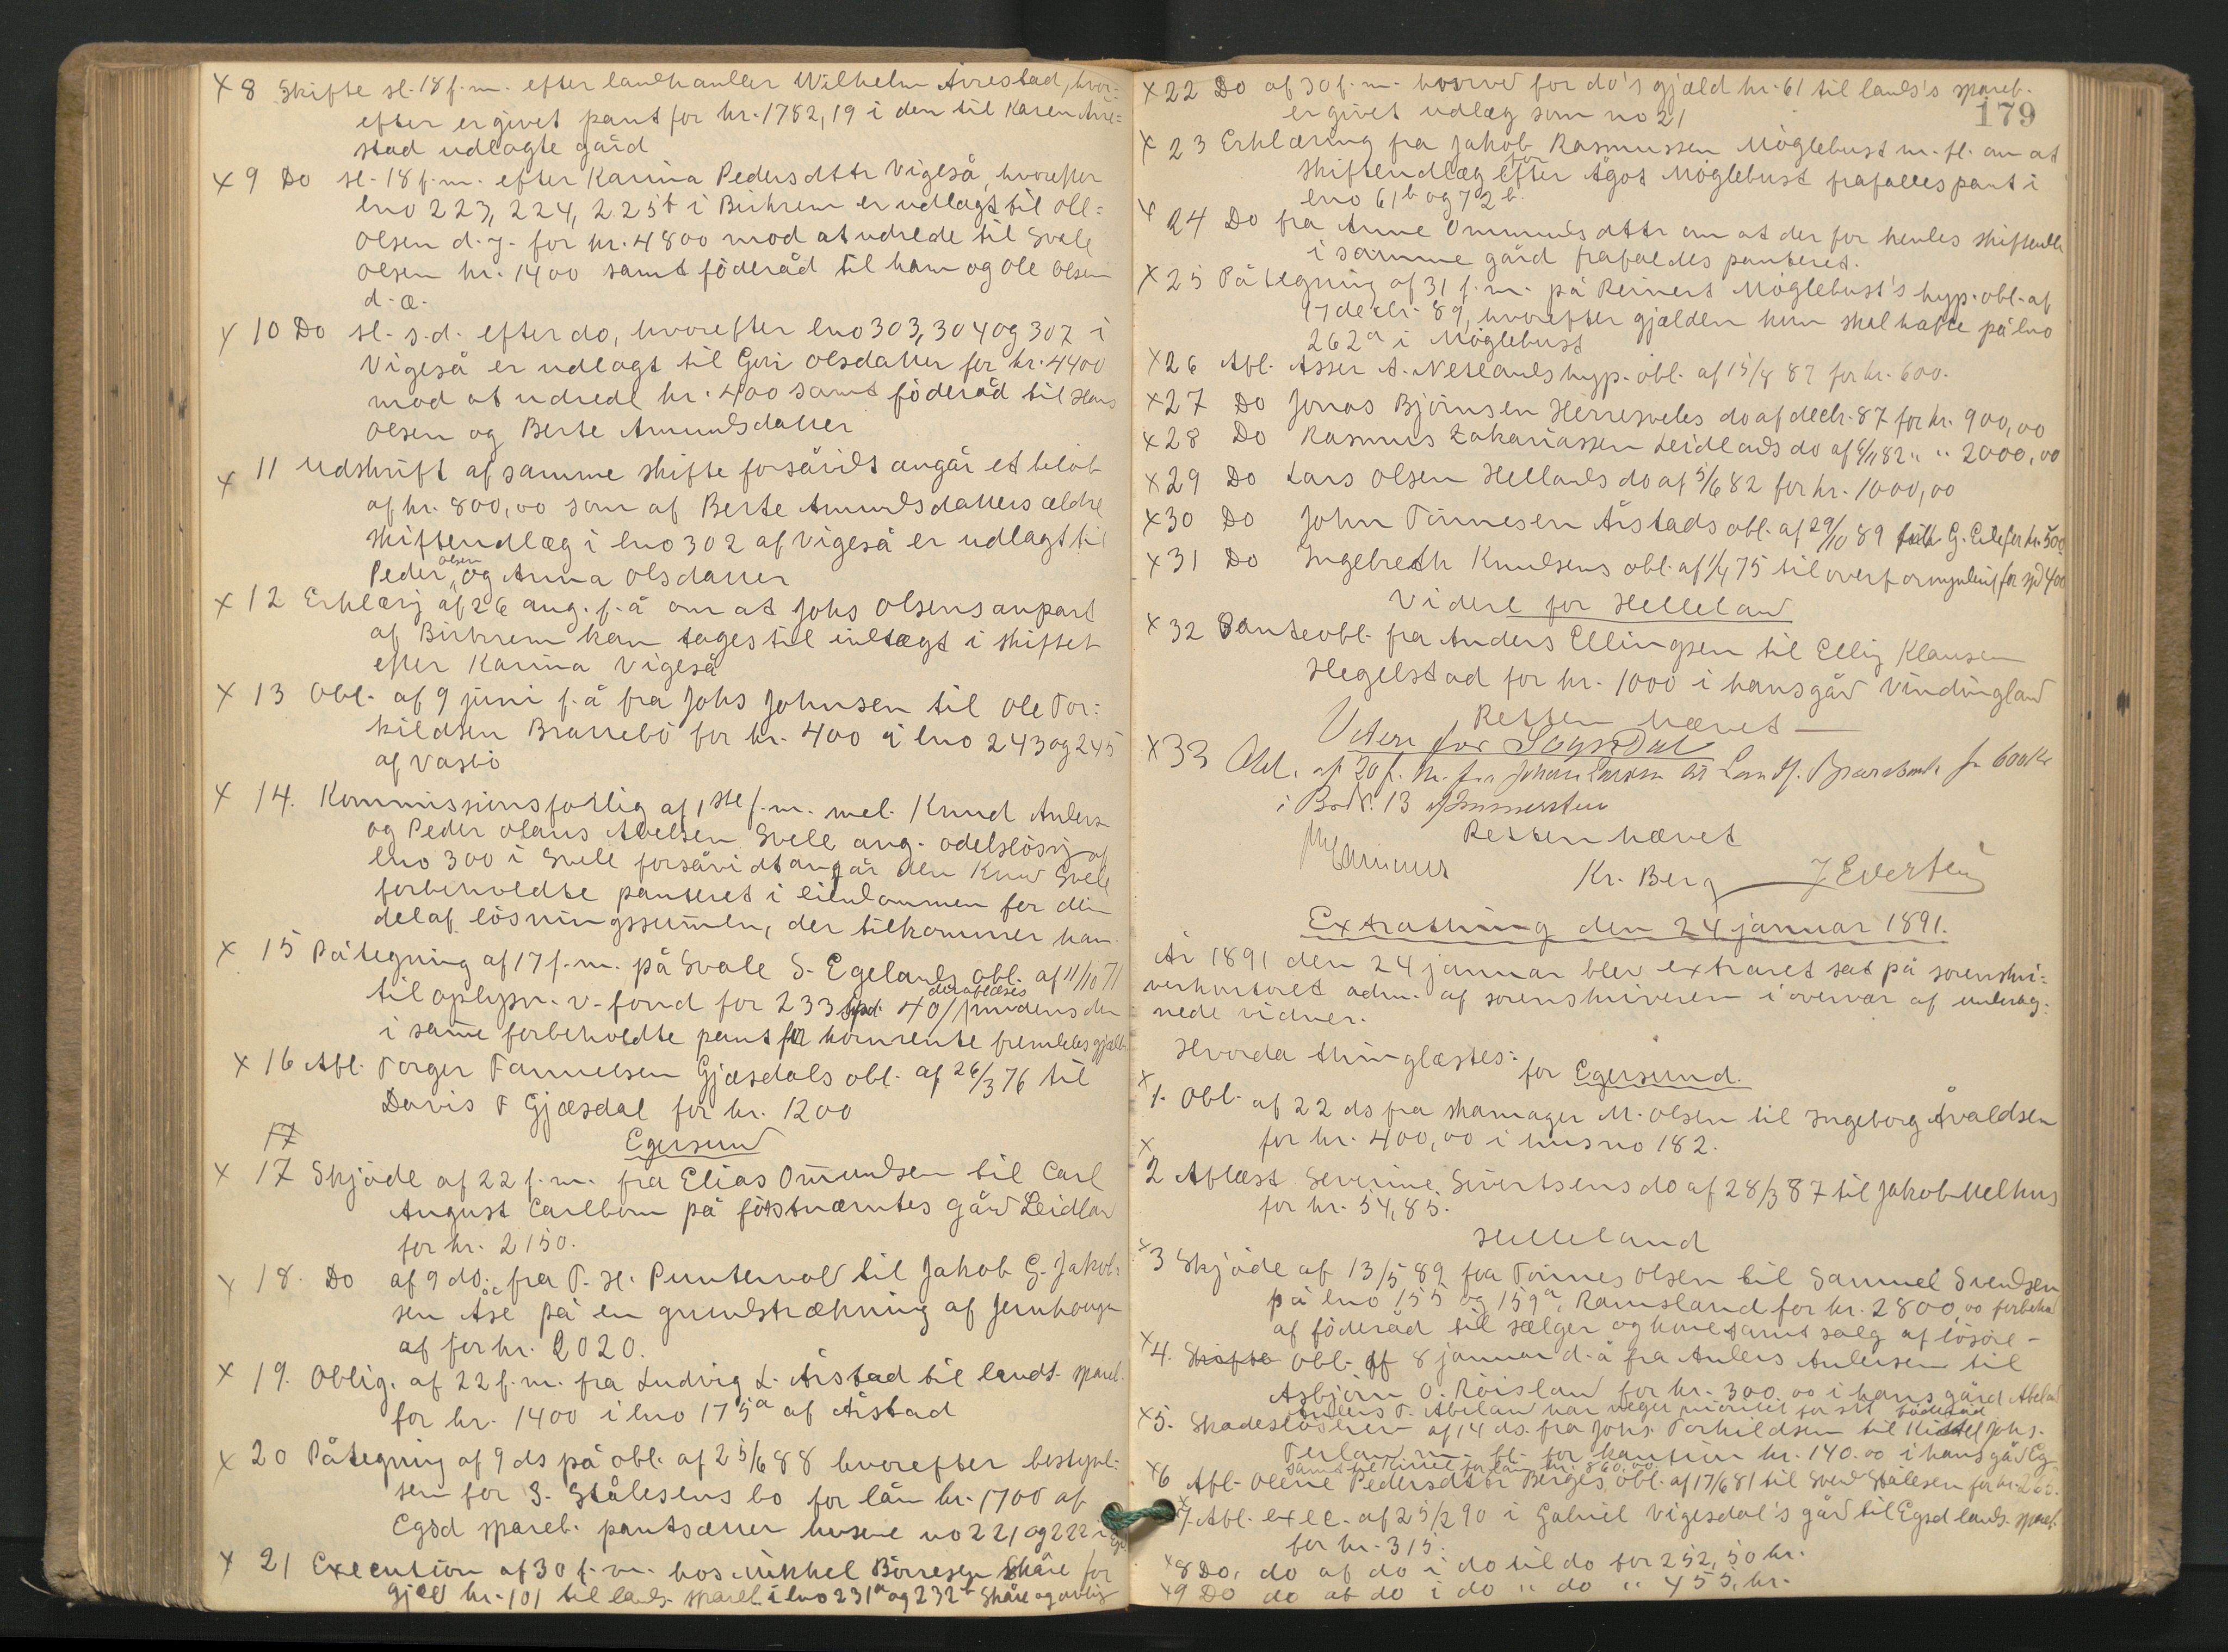 x 8 Skifte sl. 18 f. m. efter landhandler Wilhelm Årrestad, hvor-
efter er givet pant for kr. 1782,19 i den til Karen Årre=
stad udlagte gård
x 9 Do sl. 18 f. m. efter Karina Pedersdttr Vigeså, hvorefter
lno 223, 224, 225b i Birkrem er udlagt til Oll=
Olsen d. y. for kr. 4800 mod at udrede til Svale
Olsen kr. 1400 samt föderåd til ham og Ole Olsen
d. æ.
x 10 Do sl. s. d. efter do, hvorefter lno 303, 304 og 307 i
Vigeså er udlagt til Guri Olsdatter for kr. 4400
mod at udrede kr. 400 samt föderåd til Hans
Olsen og Berte Amundsdatter
x 11 Udskrift af samme skifte forsåvidt angår et belöb
af kr. 800,00 som af Berte Amundsdatters ældre
skifteudlæg i lno 302 af Vigeså er udlagt til
Peder Olsen og Anna Olsdatter
x 12 Erklærg af 26 aug. f. å om at Johs Olsens anpart
af Birkrem kan tages til indtægt i skiftet
efter Karina Vigeså
x 13 Obl. af 9 juni f. å fra Johs Johnsen til Ole Tor=
kildsen Brattebö for kr. 400 i lno 243 og 245
af Vasbö
x 14. Kommissionsforlig af 1ste f. m. mel. Knud Anders.
og Peder Olaus Abelsen Svele ang. odelslösng af
lno 300 i Svele forsåvidt angår den Knud Svele
forbeholdte panteret i eiendommen for den
del af lösningssummen, der tilkommer ham.
x 15 Påtegning af 17 f. m. på Svale S. Egelands obl. af 11/10 71
til oplysn. v. fond for 233 spd. 40 / derablæses mindens den
i samme forbeholdte pant for kornrente fremdeles gjæld.
x 16 Afl. Torger Tannelsen Gjæsdals obl. af 26/3 76 til
Davis T Gjæsdal for kr. 1200
17
Egersund
x 17 Skjöde af 22 f. m. fra Elias Omundsen til Carl
August Carlbom på förstnævntes gård Leidland
for kr. 2150.
x 18. Do af 9 ds. fra T. H. Puntervold til Jakob G. Jakob-
sen Åse på en grundstrækning af Jernhougen
af for kr. 2020.
x 19. Oblig. af 22 f. m. fra Ludvig L. Årstad til lands. spareb.
for kr. 1400 i lno 175a af Årstad
x 20 Påtegning af 9 ds på obl. af 25/6 88 hvorefter bestyrel-
sen for S. Stålesens bo for lån kr. 1700 af
Egsd spareb. pantsætter husene no 221 og 222 i Egs
x 21 Execution af 30 f. m. hos Mikkel Börresen Skåre for
gjæld kr. 101 til lands. spareb. i lno 231a og 232b Skåre og
179
x 22 Do af 30 f. m. hvorved for do's gjæld kr. 61 til lands's spareb.
er givet udlæg som no 21
x 23 Erklæring fra Jakob Rasmussen Möglebust m. fl. om at
for
skifteudlæg efter Ågot Möglebust frafalles pant i
lno 61b og 72b.
x 24 Do fra Anne Ommundsdttr om at der for hendes skifteudl
i samme gård frafaldes panteret.
x 25 Påtegning af 31 f. m. på Reinert Möglebust's hyp. obl. af
17 decbr. 89, hvorefter gjælden kun skal hæfte på lno
262a i Möglebust
x 26 Afl. Asser A. Netlands hyp. obl. af 15/8 87 for kr. 600.
x 27 Do Jonas Björnsen Herresveles do af decbr. 87 for kr. 900,00
x 28 Do Rasmus Zakariassen Leidlands do af 6/11 82 " " 2000,00
x 29 Do Lars Olsen Hellands do af 5/6 82 for kr. 1000,00
x 30 Do John Tönnesen Årstads obl. af 29/10 89 til G. Eide for kr. 500
x 31 Do Ingebreth Knudsens obl. af 1/4 75 til overformynderiet for spd 400
Videre for Helleland
x 32 Panteobl. fra Anders Ellingsen til Ellig Klausen
Hegelstad for kr. 1000 i hans gård Vindingland
Retten hævet —
Videre for Sogndal
x 33 Obl. af 20 f. m. fra Johan Larsen til Lands. Sparebank for 600 kr
i B. Nr. 13 af
Retten hævet
Kr. Berg J Evertsen
Extrathing den 24 januar 1891.
År 1891 den 24 januar blev extraret sat på sorenskri=
verkontoret adm. af sorenskriveren i overvær af underteg-
nede vidner.
Hvorda thinglæstes:
for Egersund.
x 1. Obl. af 22 ds fra skomager M. Olsen til Ingeborg Åvaldsen
for kr. 400,00 i hus no 182.
x 2 Aflæst Severine Sivertsens do af 28/3 87 til Jakob Melhus
for kr. 54,85.
Helleland
x 3 Skjöde af 13/5 89 fra Tönnes Olsen til Samuel Svendsen
på lno 155 og 159a, Ramsland for kr. 2800,00 forbehold
af föderåd til sælger og kone samt salg af lösöre -
x 4. Skifte obl. af 8 januar d. å fra Anders Andersen til
Asbjörn O. Röisland for kr. 300.00 i hans gård Abeland
Anders T. Abeland har prioritet for sit föderåd
x 5. Skadeslösbrev af 14 ds. fra Johs. Torkildsen til Kittel Johs.
Terland m. fl. for kaution kr. 140.00 i hans gård Eg.
for lån kr. 860,00.
x 6 Afl. Olene Pedersdttr Berges obl. af 17/6 81 til Svend Stålesen for kr. 260.
x 7. Afl. exec. af 25/2 90 i Gabriel Vigesdal's gård til Egsd lands. spareb.
for kr. 315.
x 8 Do, do af do i do til do for 252,50 kr.
x 9 Do do af do i do " do " 455, kr.